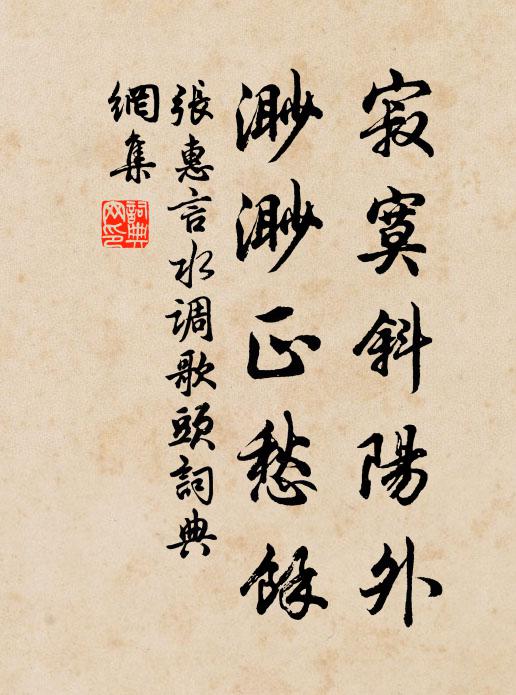 寂寞斜陽外
渺渺正愁餘
張惠言水调歌頭詞典
網集
詞典網印